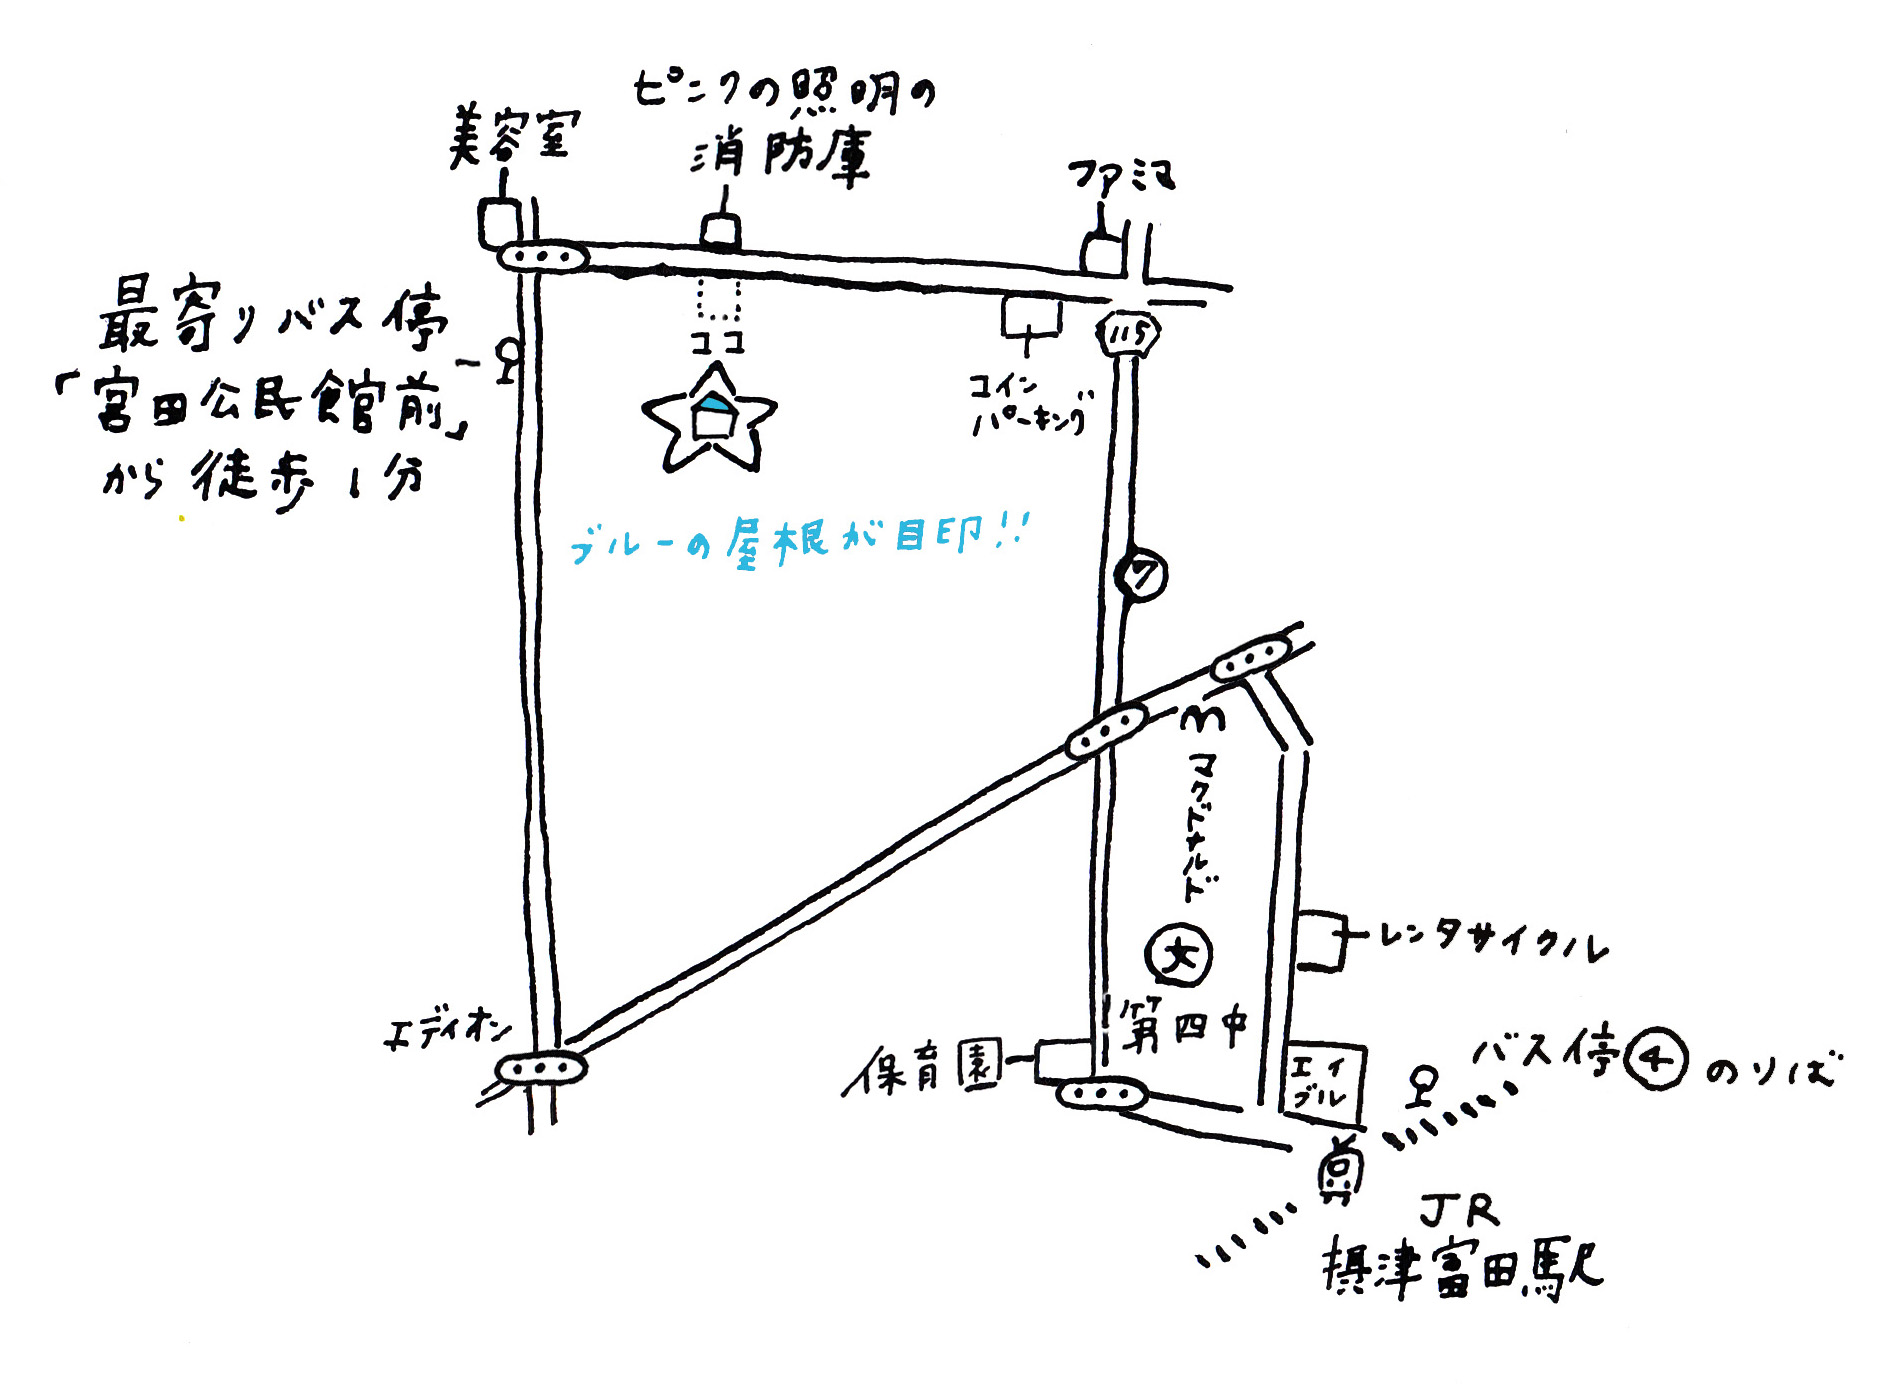 ピンクの照明の
消防庫
美容室
ファミマ
最寄りバス停
「宮田公民館前」
から徒歩1分
ココ
115
コイン
パーキング
ブルーの屋根が目印!!
ワ
m
マクドナルド
文
第四中
レンタサイクル
エディオン
保育園
エイ
ブル
バス停④のりば
JR
摂津富田駅